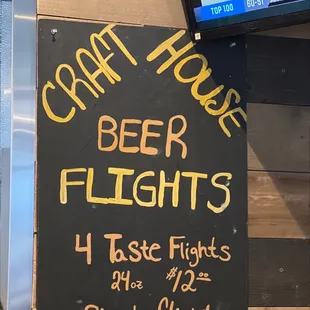 TOP 100 60-51
CRAFT HOUSE
BEER
FLIGHTS
4 Taste Flights
24oz $12.00